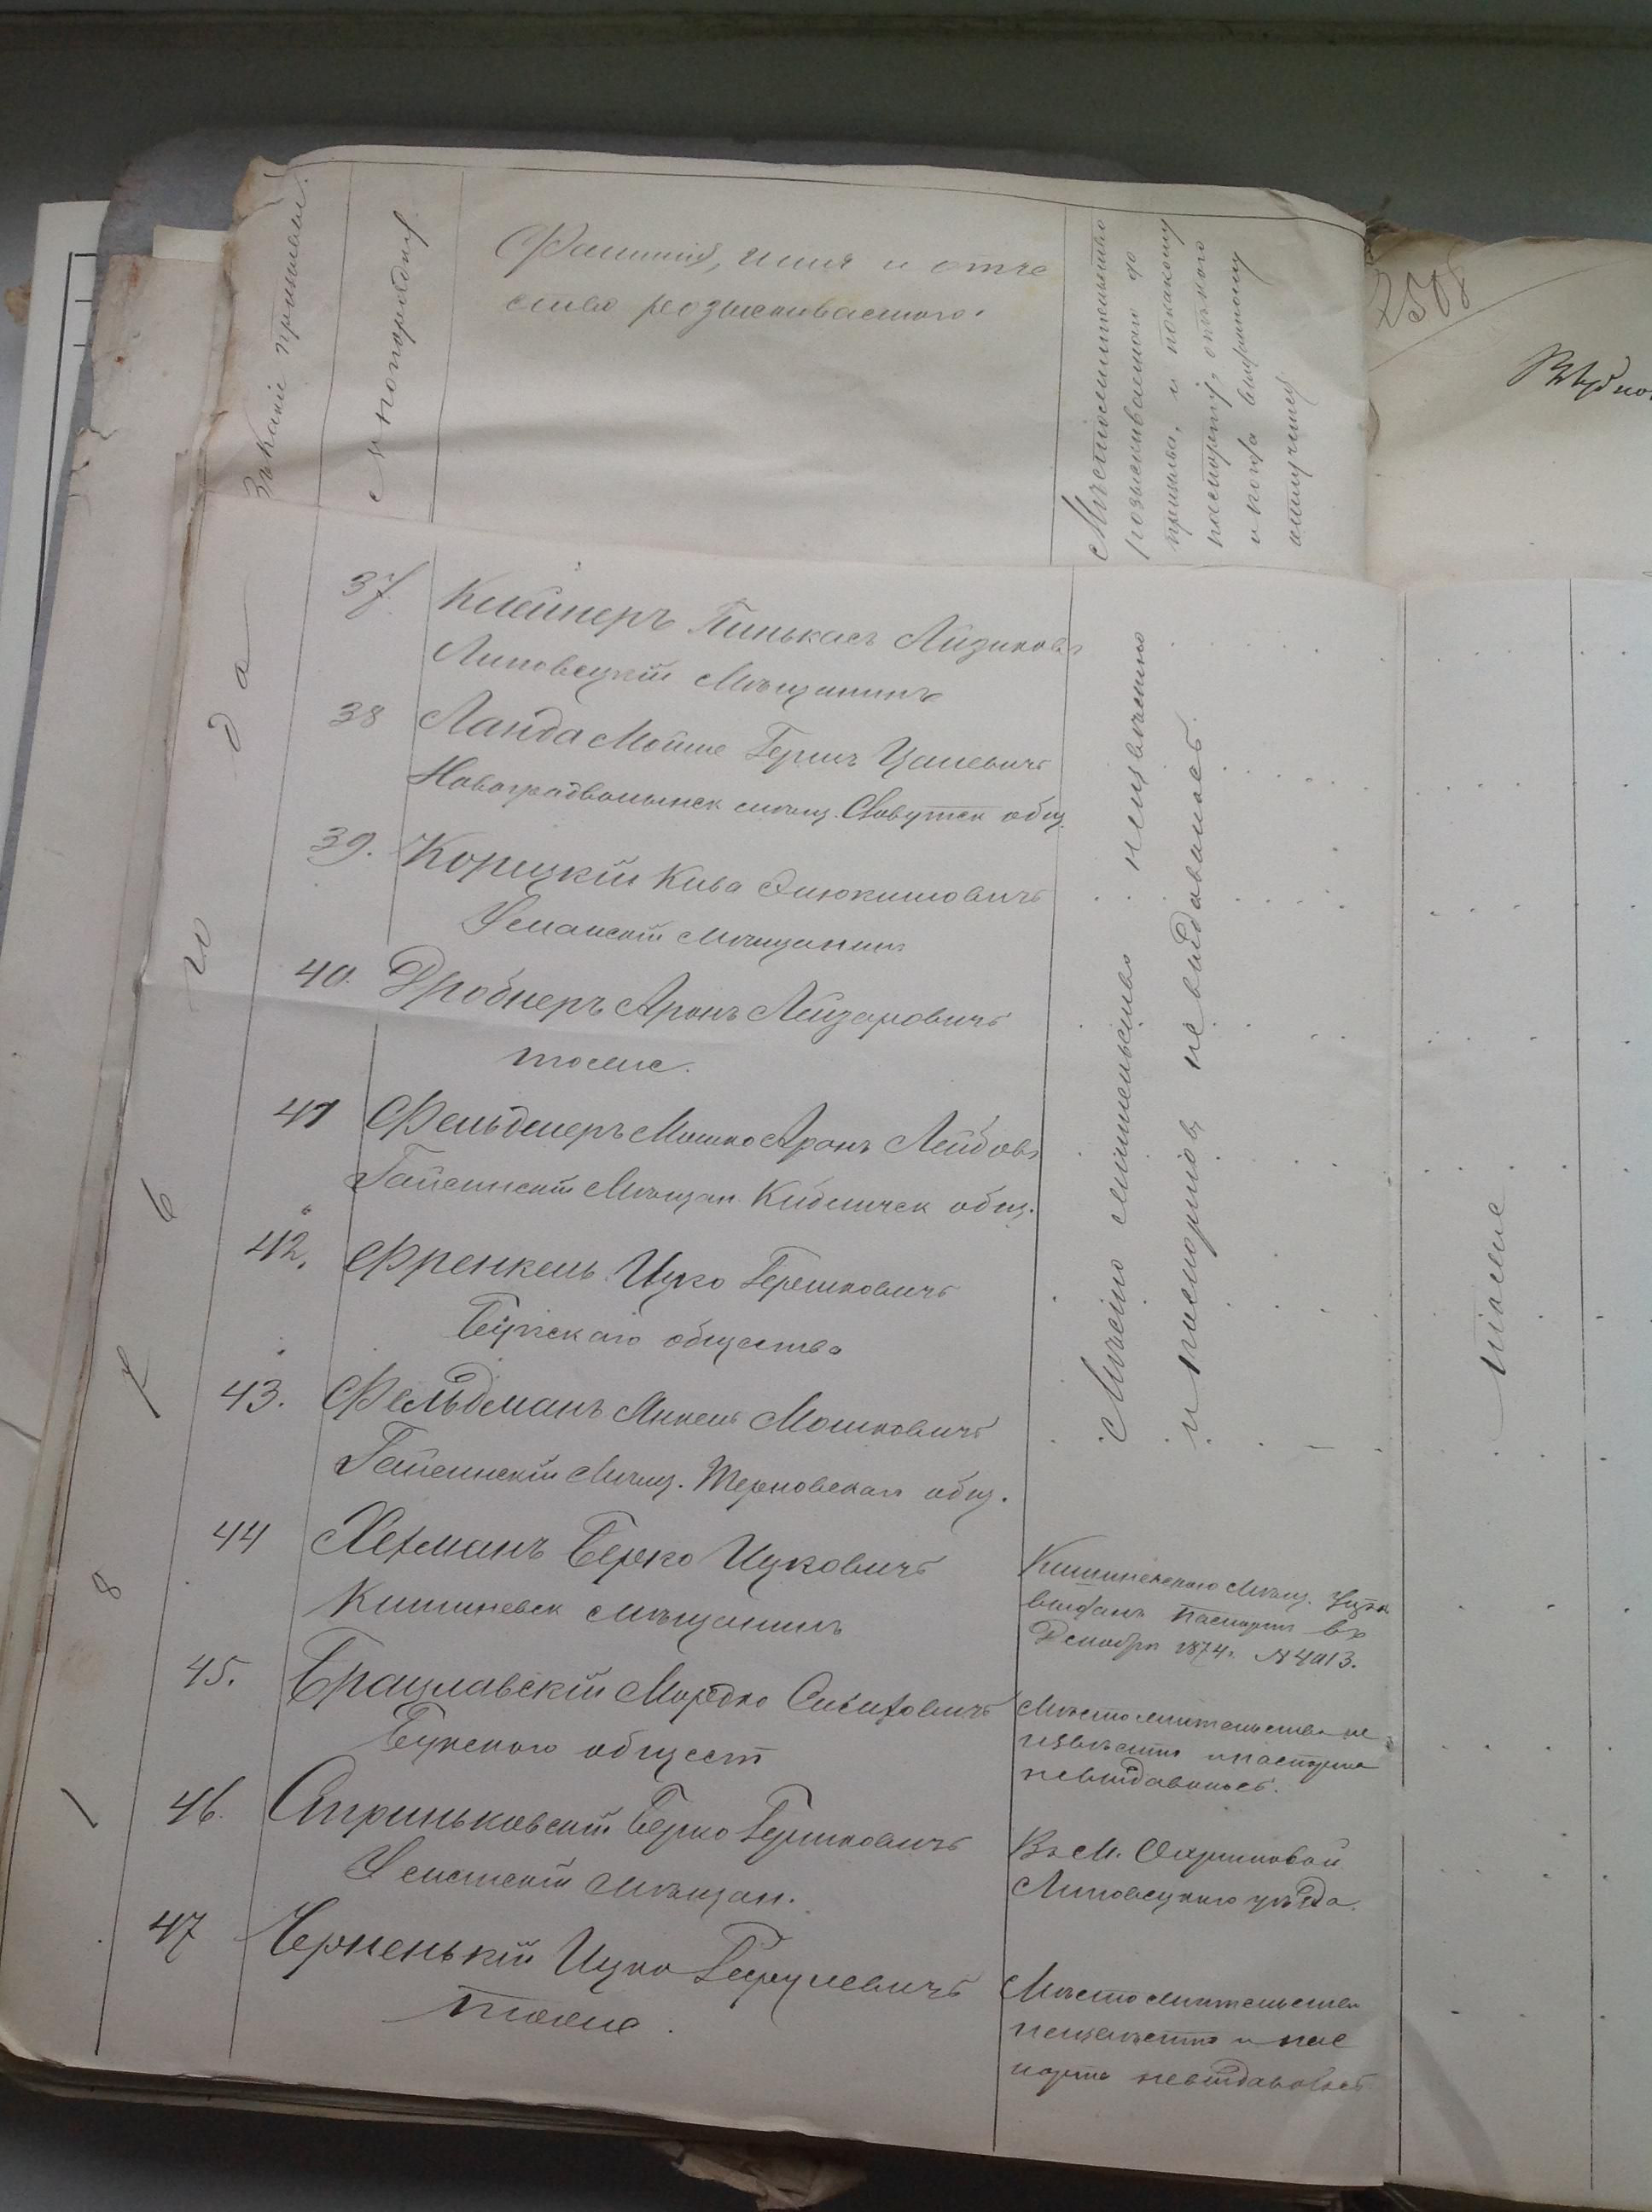 За какой призывъ.
№ по порядку
Фамилія, имя и отче
ство розыскиваемаго.
Мѣстожительство
розыскиваемаго до
призыва, и по какому
паспорту, отъ кого
и когда выданному
отлучился
250
37. Клейнеръ Пинькасъ Айзиковъ
Липовецкій Мѣщанинъ
38 Ланда Мойше Гершъ
Новоградволынск мѣщ. Славутск общ.
39. Корицкій Кива
Уманскій мѣщанинъ
40. Дробнеръ Аронъ Лейзеровичъ
тоже.
41 Фельдмеръ Мошко Аронъ Лейбовъ
Гайсинскій Мѣщан. общ.
42. Френкель Ицко Гершковичъ
общества
43. Фельдманъ Янкель Мошковичъ
Гайсинскій Мѣщ. Терновскаго общ.
44 Хехманъ Берко Ицковичъ
Кишиневск мѣщанинъ
45. Брацлавскій Мордко
общест
46. Берко Гершковичъ
Уманскій мѣщан.
47 Черненькій Ицко
тоже.
Мѣсто жительство неизвѣстно
и паспортовъ не выдавалось.
Кишиневскою Мѣщ. Упр.
выданъ паспортъ въ
Декабрѣ 1874г. №4013.
Мѣсто жительства не
извѣстно и паспорта
невыдавалось.
Въ М.
Липовецкаго уѣзда.
Мѣсто жительства
неизвѣстно и пас
порта невыдавалось
тоже